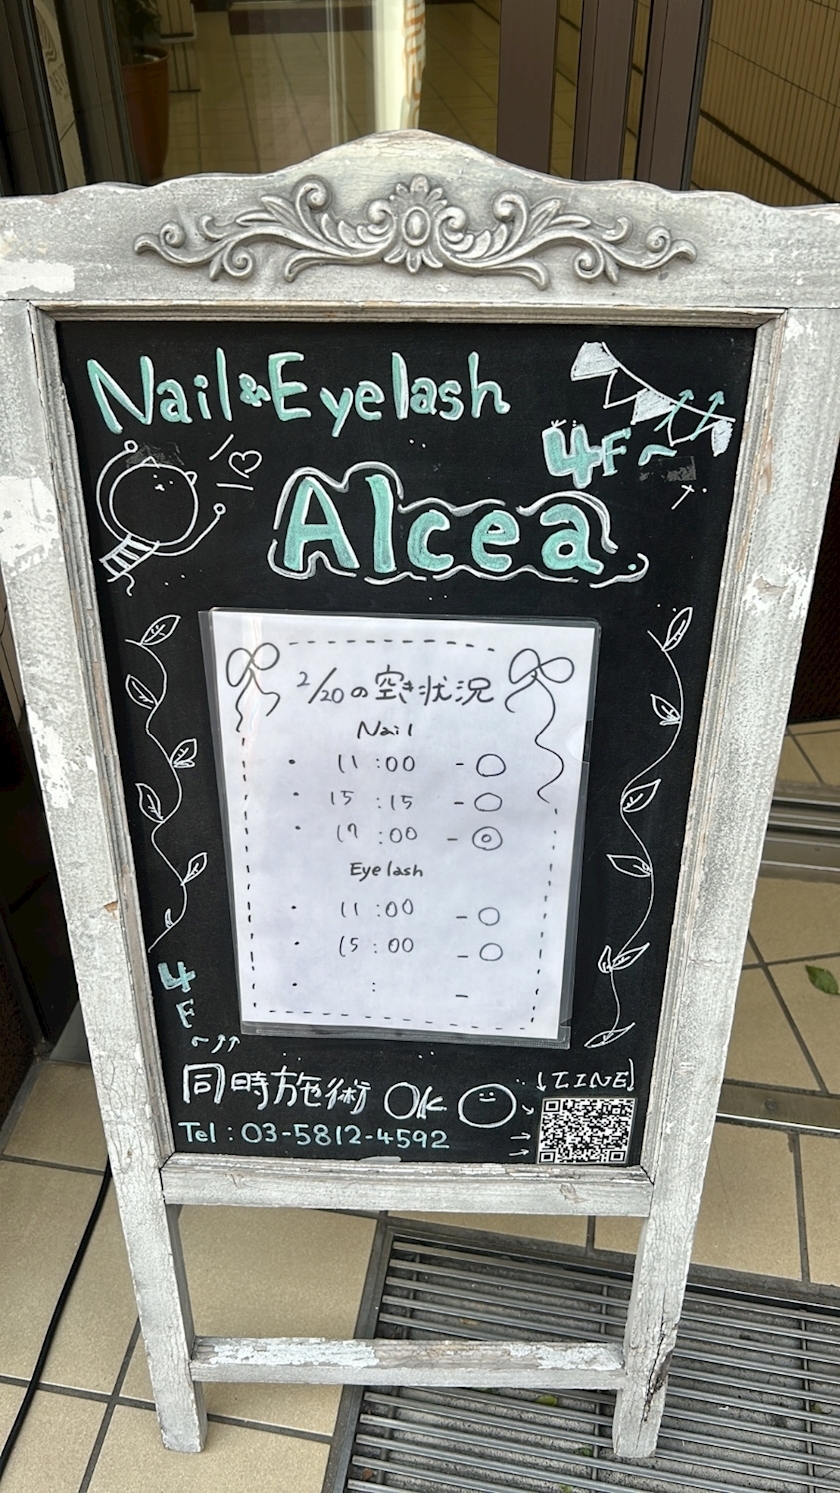 Nail&Eyelash
4F~
Alcea
2/20の空き状況
Nail
・ 11:00 - ○
・ 15:15 - ○
・ 17:00 - ◎
Eyelash
・ 11:00 - ○
・ 15:00 - ○
・ : -
4F~
同時施術 OK
LINE
Tel:03-5812-4592